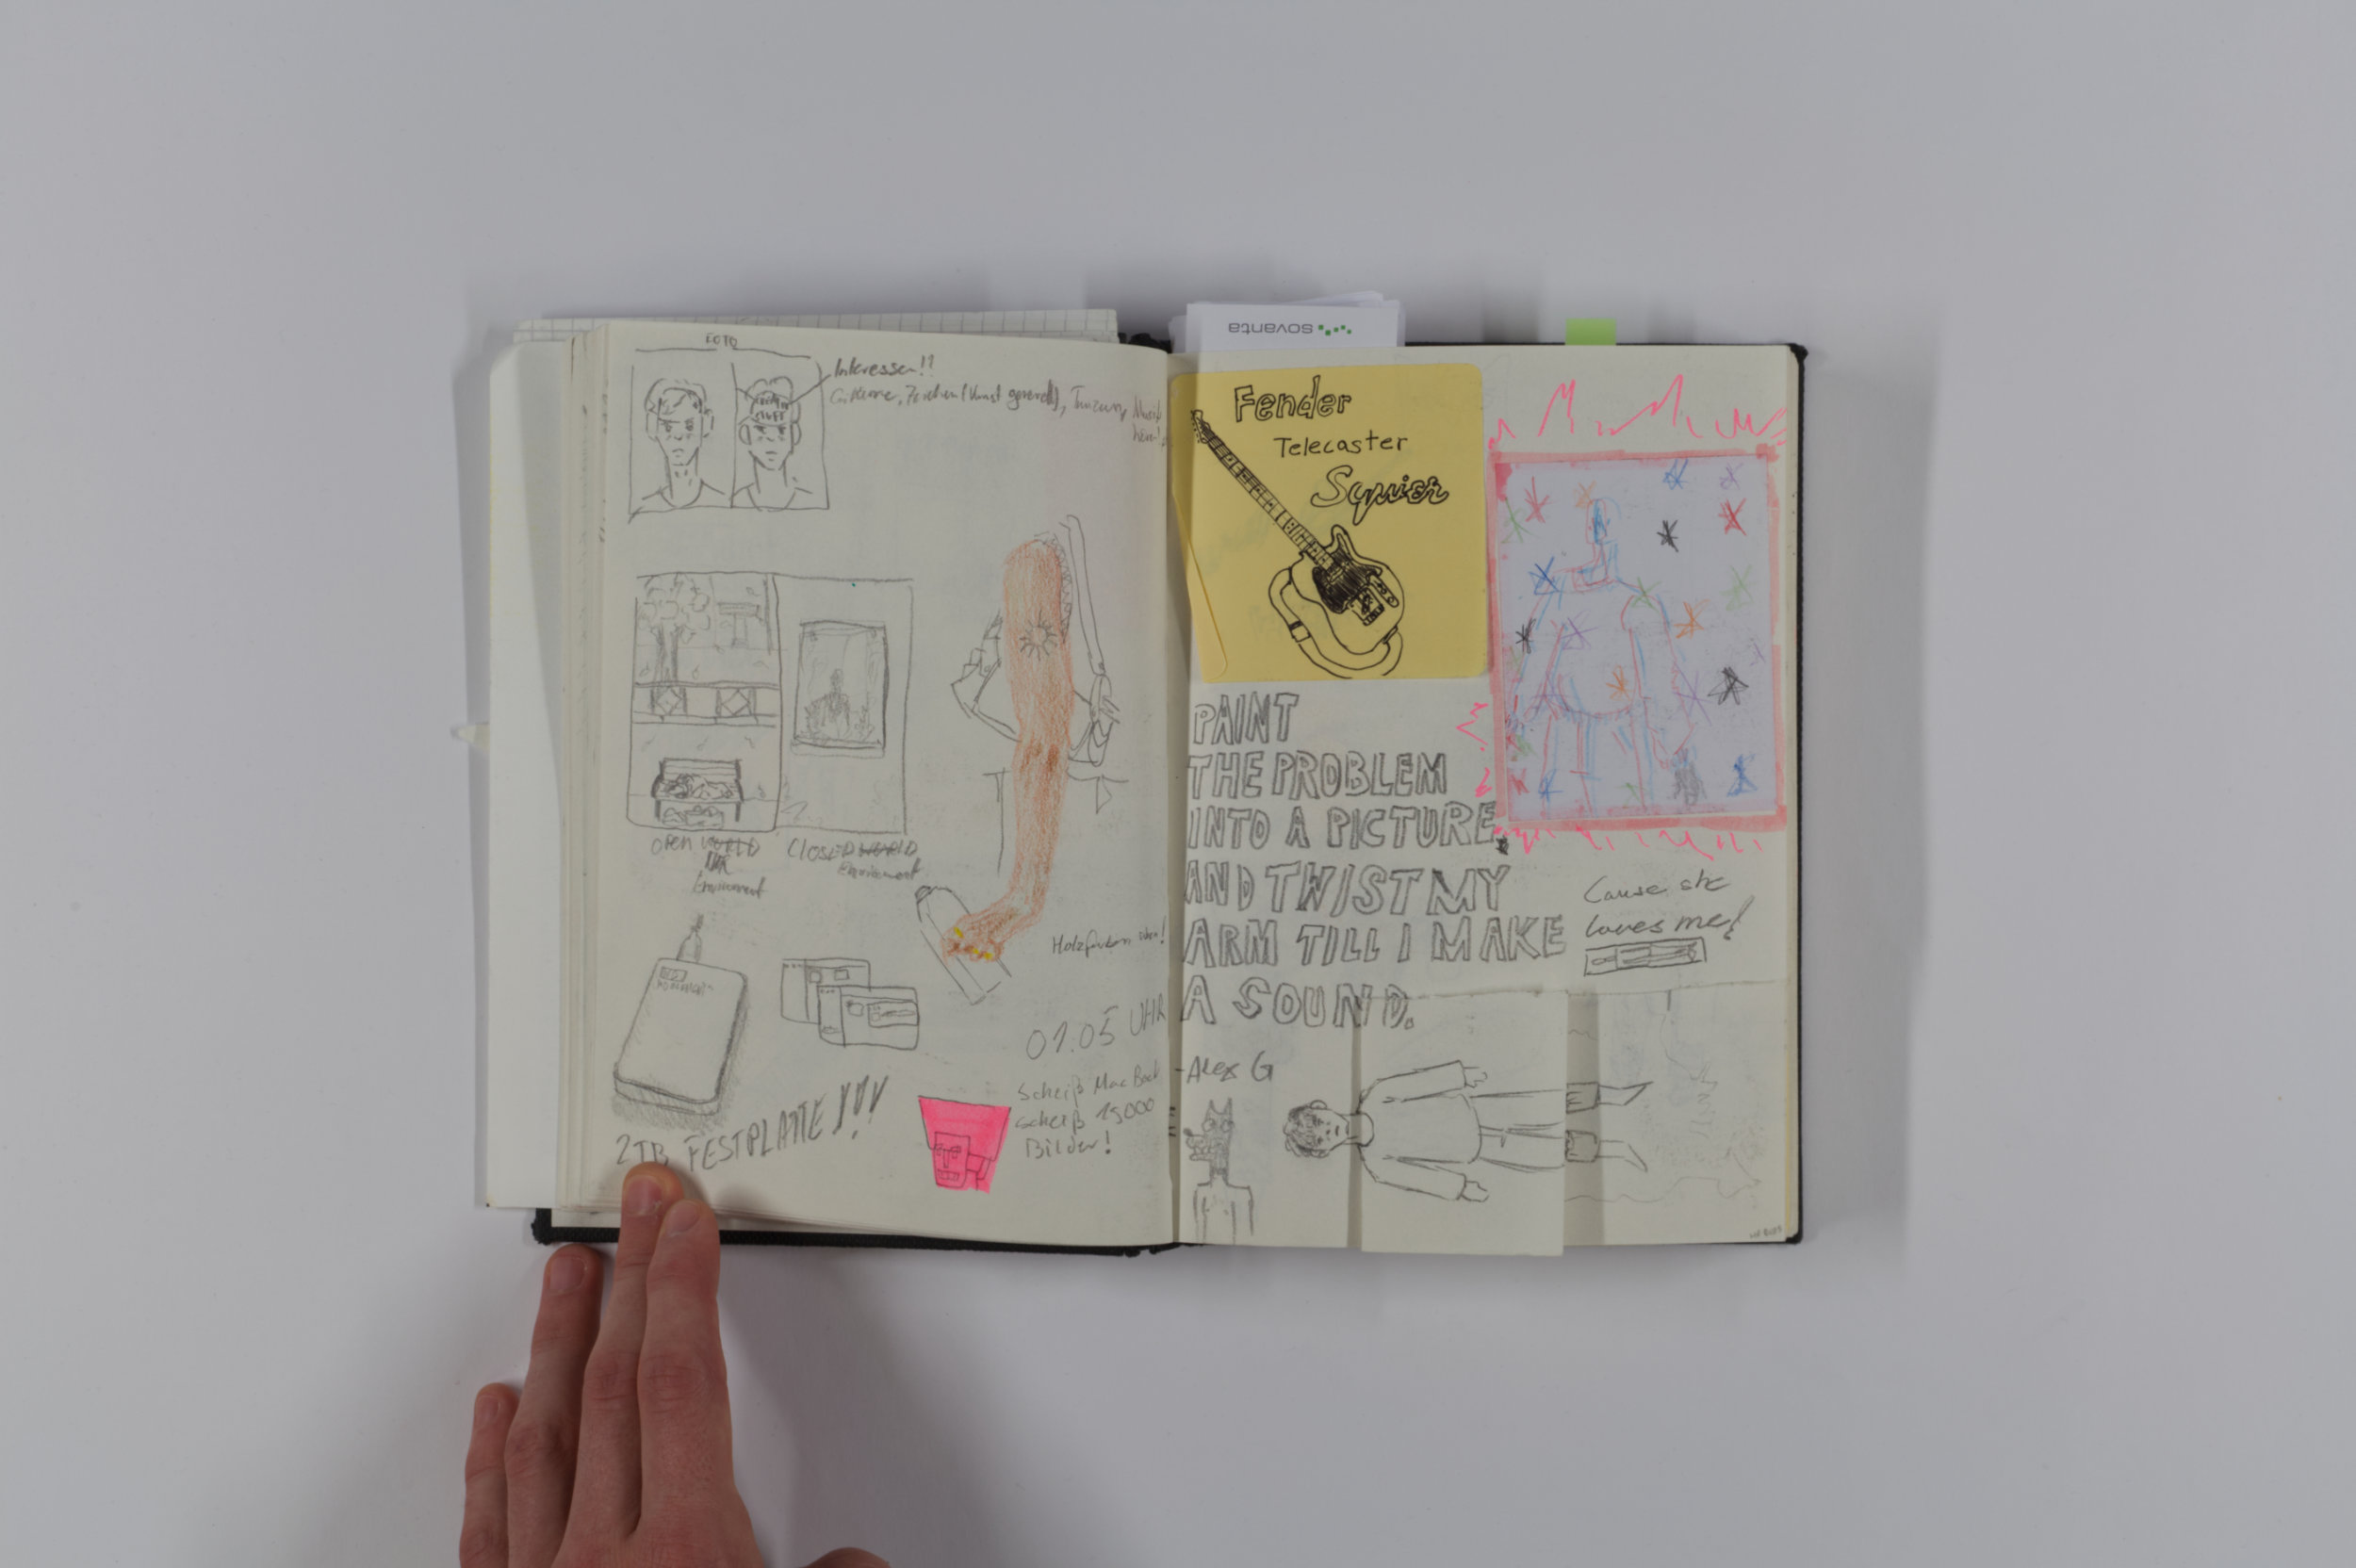 FOTO
Interessen!?
Gitarre, Zeichen (Kunst generell), Tanzen, Musik
hören!
OPEN WORLD
Environment
CLOSED WORLD
Environment
Holzfarben üben!
2TB FESTPLATTE!!!
01.05 UHR
Scheiß MacBook
scheiß 15000
Bilder!
sovanta
Fender
Telecaster
Squier
PAINT
THE PROBLEM
INTO A PICTURE,
AND TWIST MY
ARM TILL I MAKE
A SOUND.
-Alex G
Cause she
loves me!